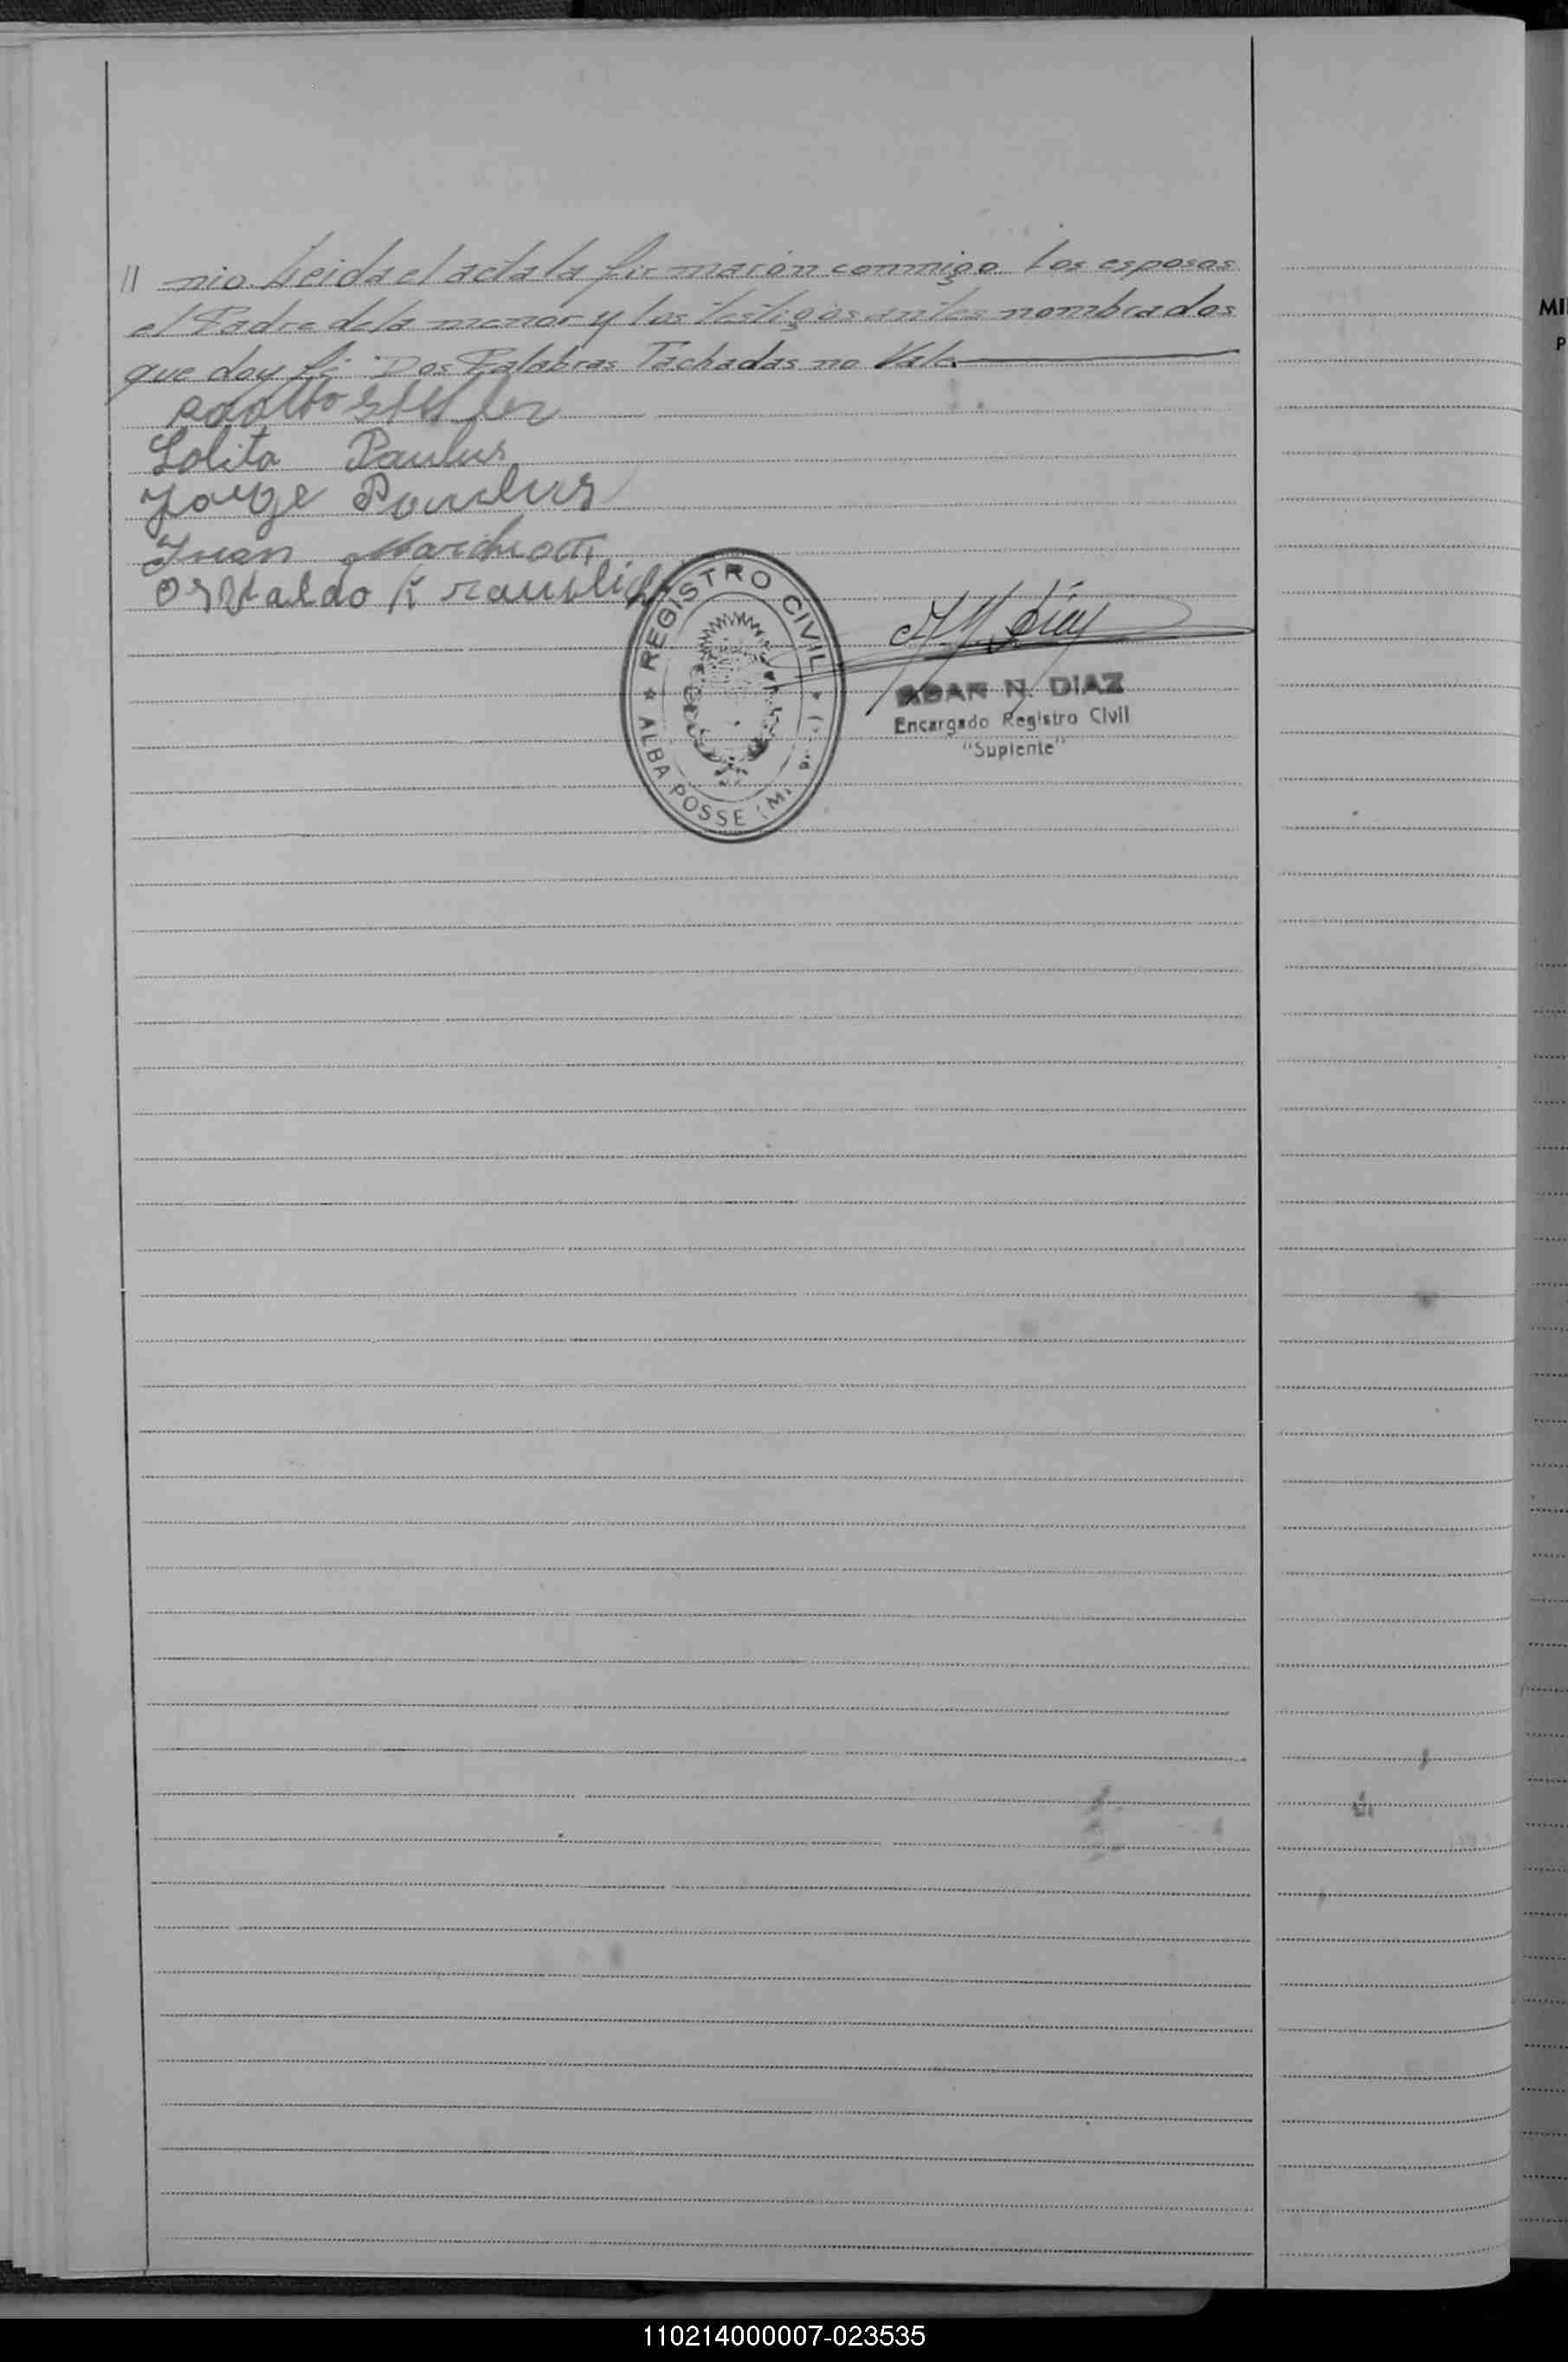 // nio. Leida el acta la firmarón conmigo Los esposos
el Padre dela menor y los testigos antes nombrados
que doy fé "Dos Palabras Tachadas no Vale.
Lolita Paulus
Jorge Paulus
Juan
Osvaldo
REGISTRO CIVIL
ALBA POSSE (M
ADAN N. DIAZ
Encargado Registro Civil
"Suplente"
MI
P
110214000007-023535